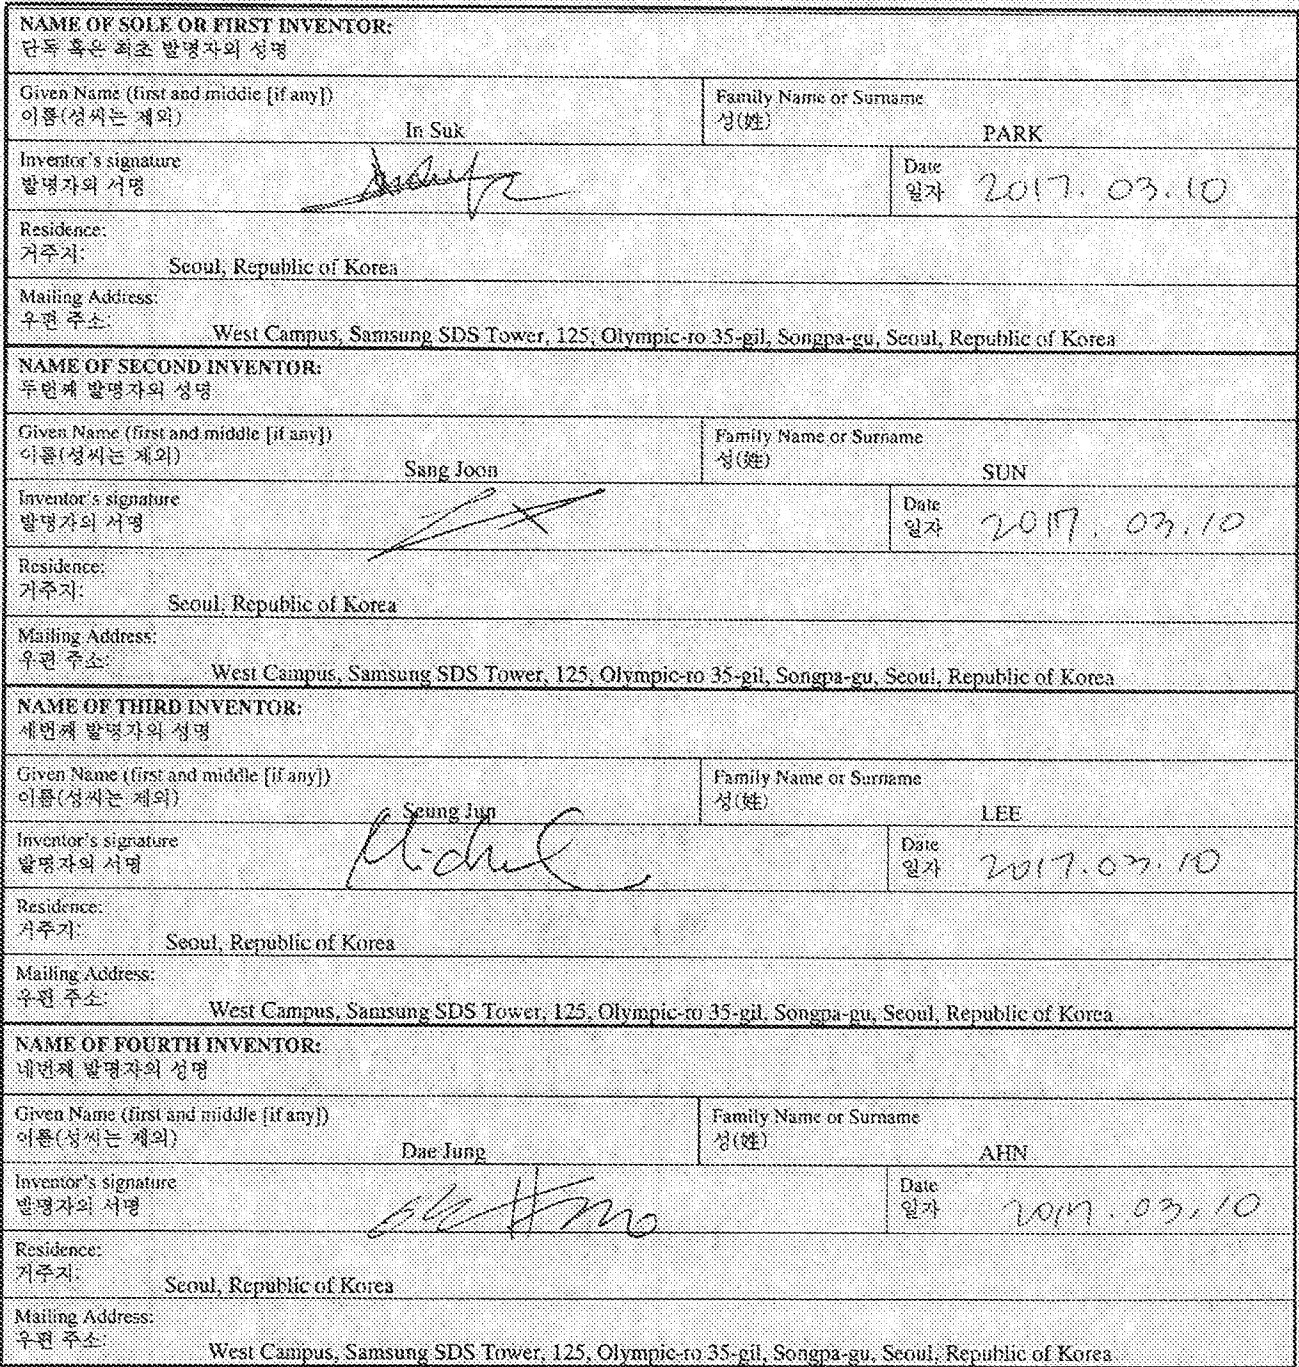 NAME OF SOLE OR FIRST INVENTOR:
단독 혹은 최초 발명자의 성명
Given Name (first and middle [if any])
이름(성씨는 제외)
In Suk
Family Name or Surname
성(姓)
PARK
Inventor's signature
발명자의 서명
Date
일자
2017. 03. 10
Residence:
거주지:
Seoul, Republic of Korea
Mailing Address:
우편 주소:
West Campus, Samsung SDS Tower, 125, Olympic-ro 35-gil, Songpa-gu, Seoul, Republic of Korea
NAME OF SECOND INVENTOR:
두번째 발명자의 성명
Given Name (first and middle [if any])
이름(성씨는 제외)
Sang Joon
Family Name or Surname
성(姓)
SUN
Inventor's signature
발명자의 서명
Date
일자
2017. 03. 10
Residence:
거주지:
Seoul, Republic of Korea
Mailing Address:
우편 주소:
West Campus, Samsung SDS Tower, 125, Olympic-ro 35-gil, Songpa-gu, Seoul, Republic of Korea
NAME OF THIRD INVENTOR:
세번째 발명자의 성명
Given Name (first and middle [if any])
이름(성씨는 제외)
Seung Jun
Family Name or Surname
성(姓)
LEE
Inventor's signature
발명자의 서명
Date
일자
2017. 03. 10
Residence:
거주지:
Seoul, Republic of Korea
Mailing Address:
우편 주소:
West Campus, Samsung SDS Tower, 125, Olympic-ro 35-gil, Songpa-gu, Seoul, Republic of Korea
NAME OF FOURTH INVENTOR:
네번째 발명자의 성명
Given Name (first and middle [if any])
이름(성씨는 제외)
Dae Jung
Family Name or Surname
성(姓)
AHN
Inventor's signature
발명자의 서명
Date
일자
2017. 03. 10
Residence:
거주지:
Seoul, Republic of Korea
Mailing Address:
우편 주소:
West Campus, Samsung SDS Tower, 125, Olympic-ro 35-gil, Songpa-gu, Seoul, Republic of Korea